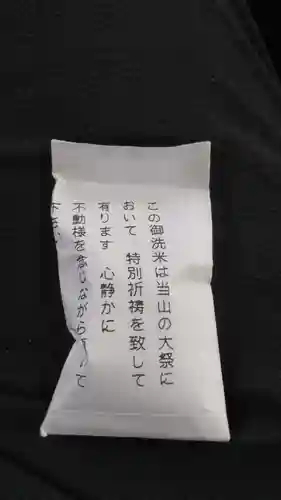 この御洗米は当山の大祭に
おいて 特別祈祷を致して
有ります 心静かに
不動様を念じながら
下さい